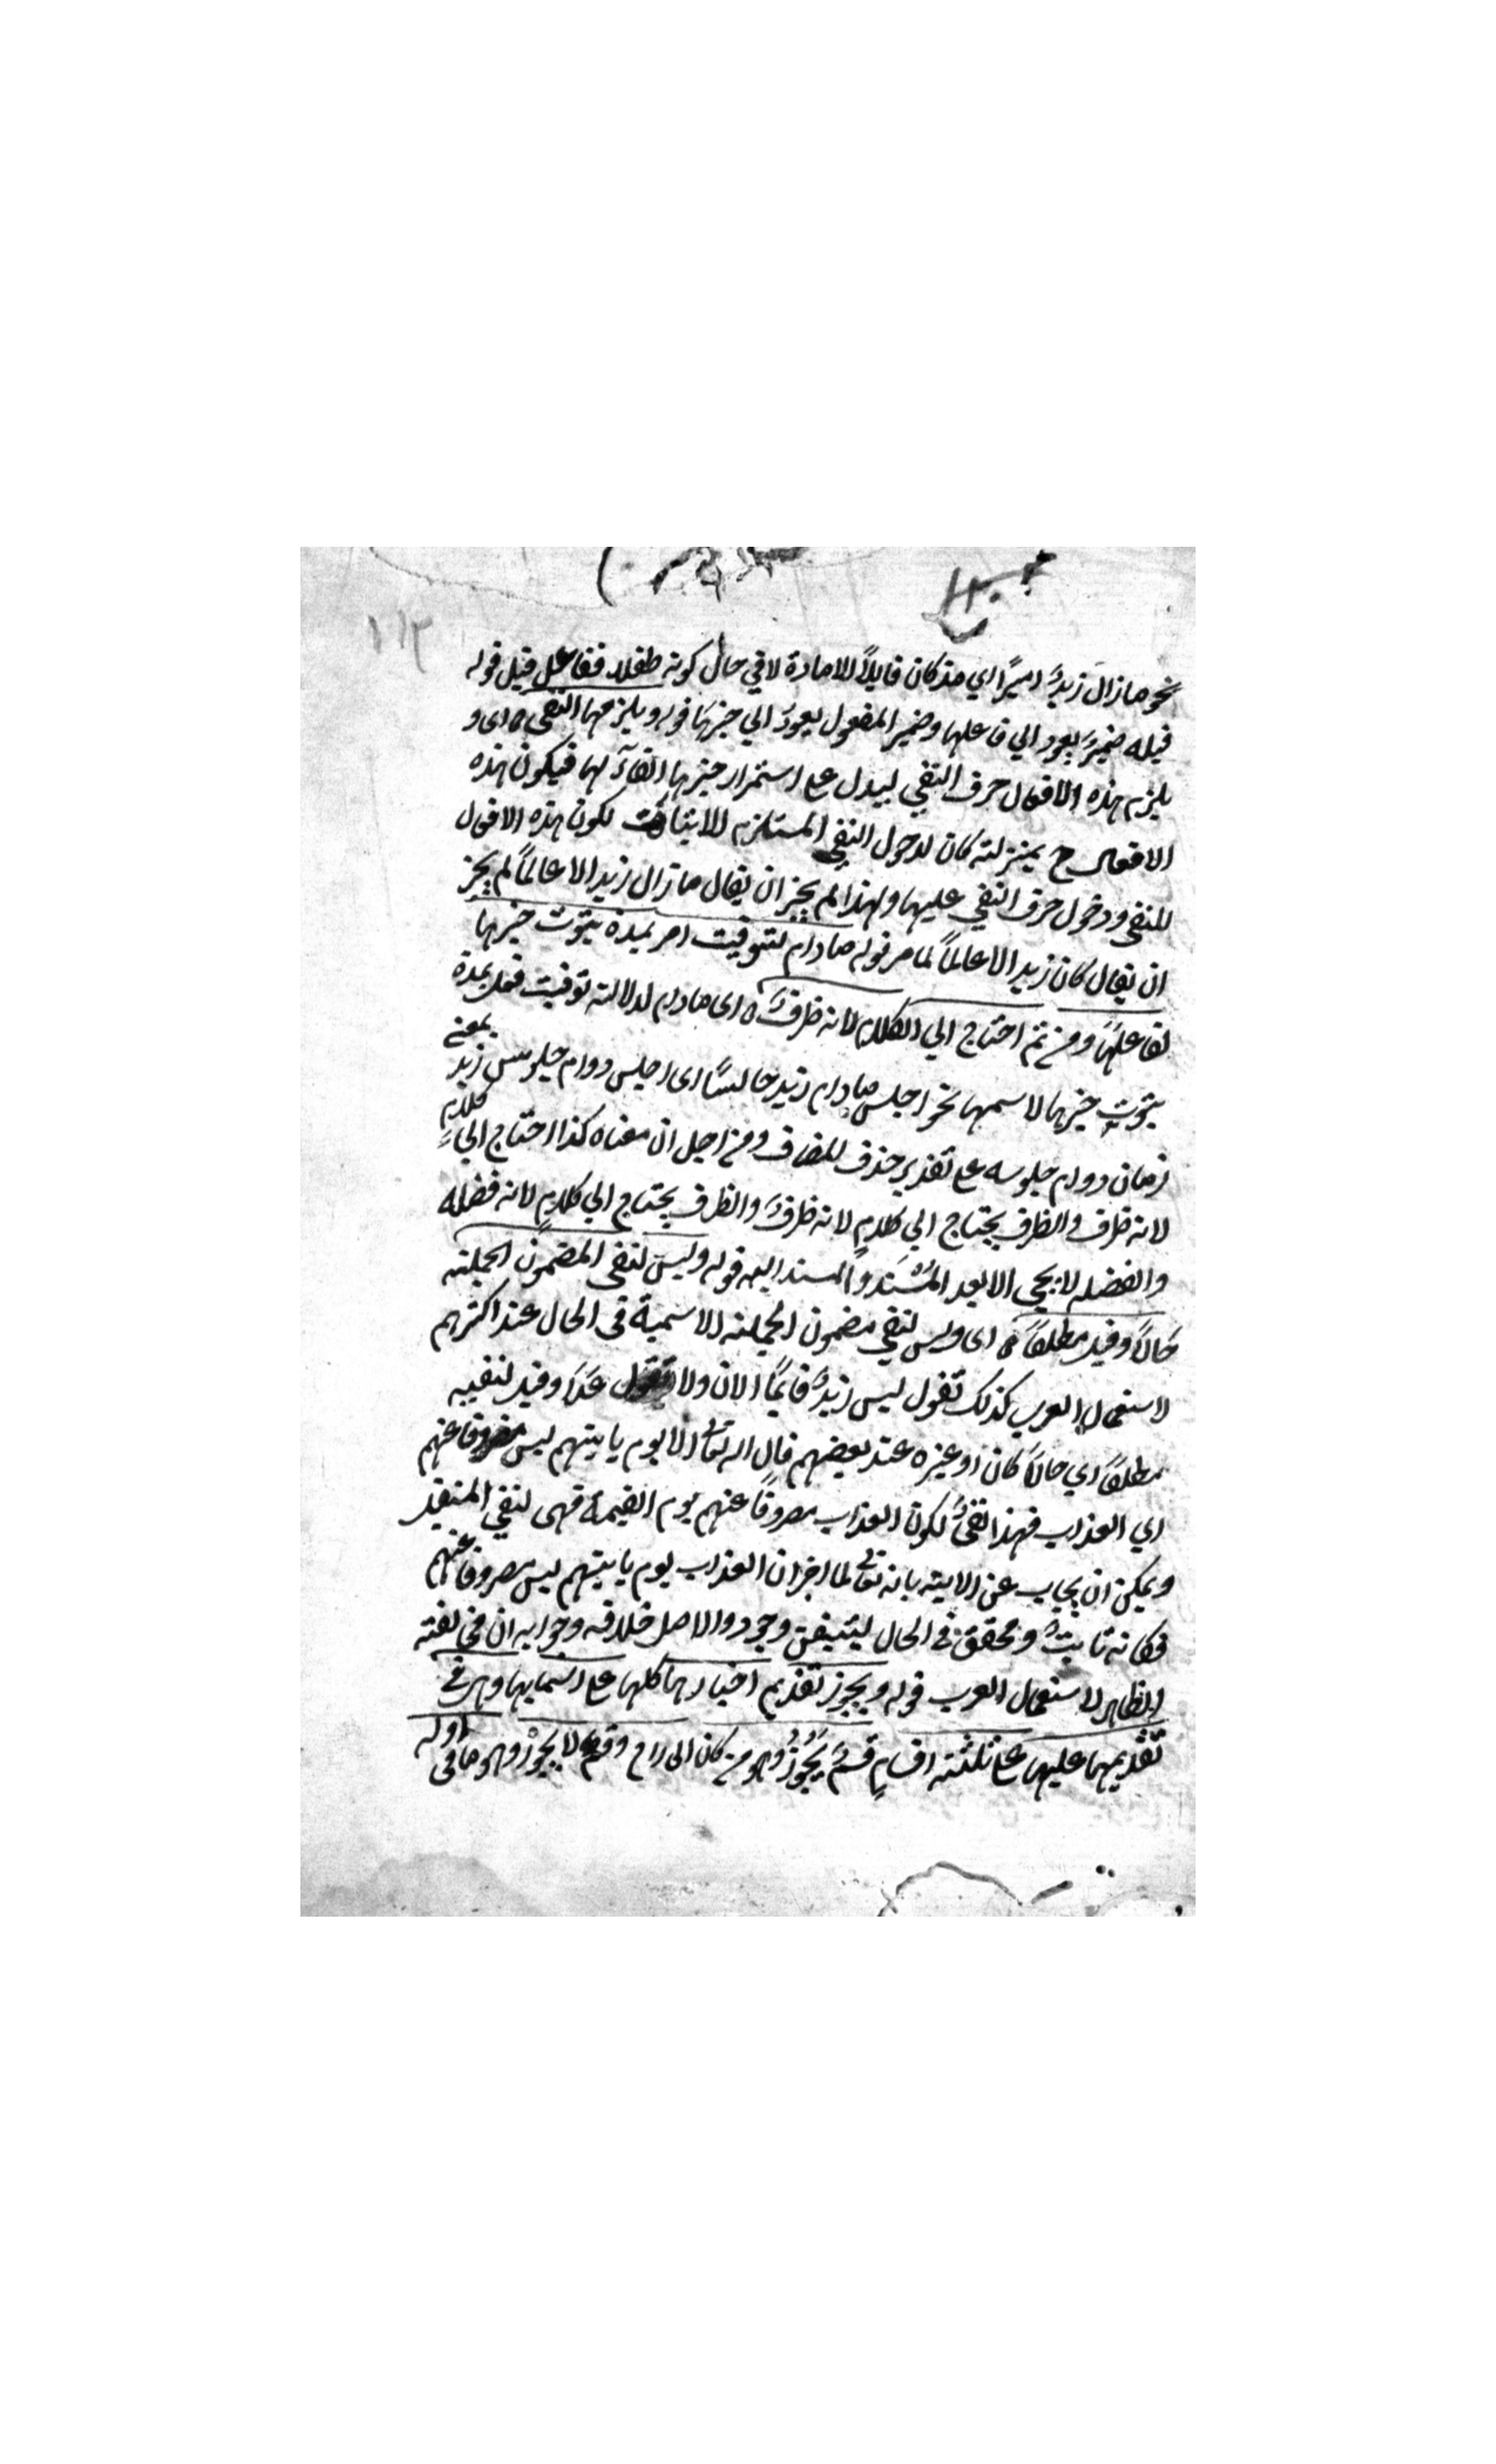 ١١٣
نحو ما زال زيدٌ اميرًا اي مذ كان قابلاً للامارة لا في حال كونه طفلا ففاعل قبل قوله
قبله ضميرٌ يعود الي فاعلها وضمير المفعول يعودُ الي خبرها قوله ويلزمها النفي ه اى و
يلزم هذه الافعال حرف النفي ليدل على استمرار خبرها لفاعلها فيكون هذه
الافعال ح بمنزلة كان لدخول النفي المستلزم للاثبات لكون هذه الافعال
للنفي ودخول حرف النفي عليها ولهذا لم يجز ان يقال ما زال زيد الا عالماً لم يجز
ان يقال كان زيد الا عالماً لما مر قوله مادام لتوقيت امر بمدة ثبوت خبرها
لفاعلها ومن ثم احتاج الي الكلام لانه ظرفٌ ه اى مادام لدلالته توقيت فعل بمدة
ثبوت خبرها لاسمها نحو اجلس مادام زيد جالسًا اى اجلس دوام جلوس زيد بمعنى
زمان دوام جلوسه على تقدير حذف المضاف ومن اجل ان معناه كذا احتاج الي كلامٍ
لانه ظرف والظرف يحتاج الي كلامٍ لانه ظرفٌ والظرف يحتاج الي كلامٍ لانه فضله
والفضله لا يجي الا بعد المُسْنَد والمسند اليه قوله وليس لنفي المضمون الجملته
حالاً وقيل مطلقاً ه اى وليس لنفي مضمون الجملته الاسمية في الحال عند اكثرهم
لاستعمال العرب كذلك تقول ليس زيدٌ قايمًا الان ولا تقول غدًا وقيل لنفيه
مطلقاً اي حالاً كان او غيره عند بعضهم قال اله تعالى الا يوم ياتيهم ليس مصروفا عنهم
اي العذاب فهذا نفيٌ لكون العذاب مصروفاً عنهم يوم القيمة فهى لنفي المستقبل
ويمكن ان يجاب عن الايته بانه تعالى لما اخبر ان العذاب يوم ياتيهم ليس مصروفا عنهم
فكانه ثابتٌ ومحقق في الحال ليتيقن وجوده والاصل خلافه وجوابه ان في لغته
الظاهر لاستعمال العرب قوله ويجوز تقديم اخبارها كلها على اسمايها وهى في
تقديمها عليها على ثلثته اقسامٍ قسمٌ يَجُوزُ وهو من كان الى راح وقسم لا يجوز وهو ما فى اوله